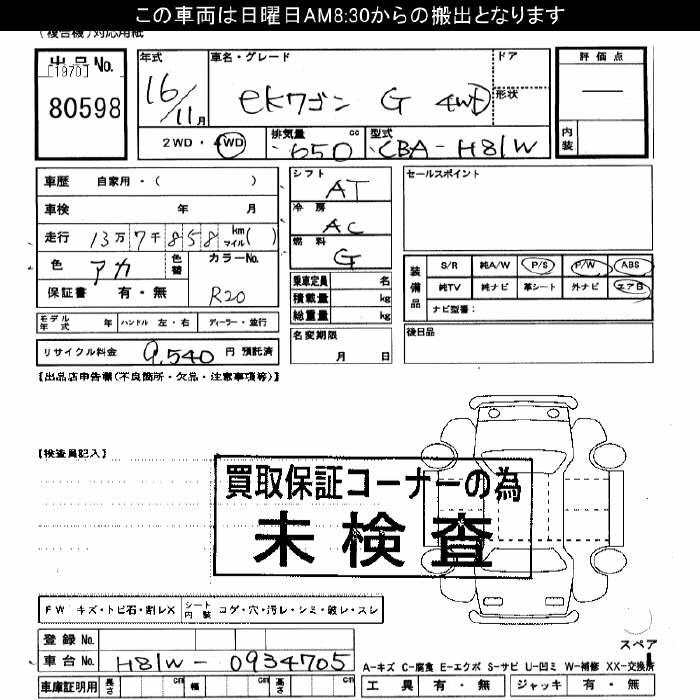 この車両は日曜日AM8:30からの搬出となります
(複合機)対応用紙
出品No.
[1970]
80598
年式
16/11月
車名・グレード
ekワゴン G 4WD
ドア
形状
2WD・4WD
排気量 cc
650
型式
CBA-H81W
評価点
―
内装
車歴 自家用・( )
車検 年 月
走行 13万7千858 km マイル( )
色 アカ
色替
カラーNo.
R20
保証書 有・無
シフト
AT
冷房
AC
燃料
G
乗車定員 名
積載量 kg
総重量 kg
名変期限
月 日
セールスポイント
装備品
S/R 純A/W P/S P/W ABS
純TV 純ナビ 革シート 外ナビ エアB
ナビ型番:
後日品
モデル年式 年 ハンドル 左・右 ディーラー・並行
リサイクル料金 9,540 円 預託済
【出品店申告欄(不良箇所・欠品・注意事項等)】
【検査員記入】
買取保証コーナーの為
未検査
FW キズ・トビ石・割レX シート内装 コゲ・穴・汚レ・シミ・破レ・スレ
登録No.
車台No. H81W-0934705
車庫証明用 長さ cm 幅 cm 高さ cm
スペア
A-キズ C-腐食 E-エクボ S-サビ U-凹ミ W-補修 XX-交換済
工具 有・無 ジャッキ 有・無